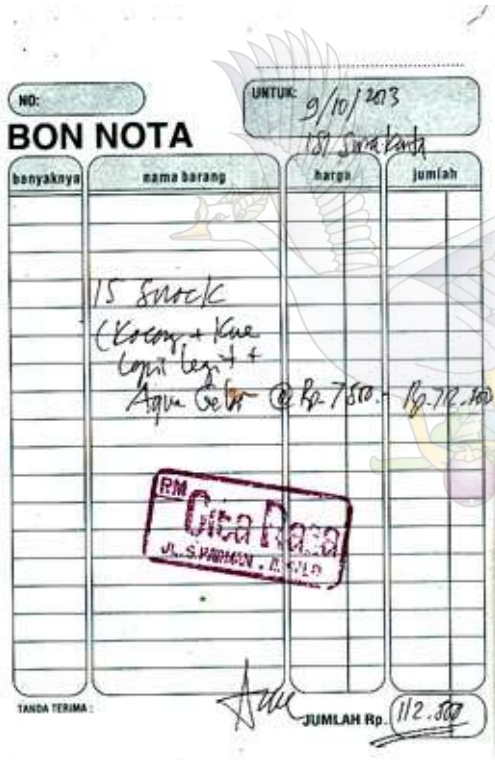 NO:
UNTUK: 9/10/2013
ISI Surakarta
BON NOTA
banyaknya nama barang harga jumlah
15 Snack
(Kacang + Kue
Lapis legit +
Aqua Gelas @ Rp. 7500.- Rp. 112.500
RM
Cita Rasa
JL. S. PARMAN
TANDA TERIMA :
JUMLAH Rp. 112.500